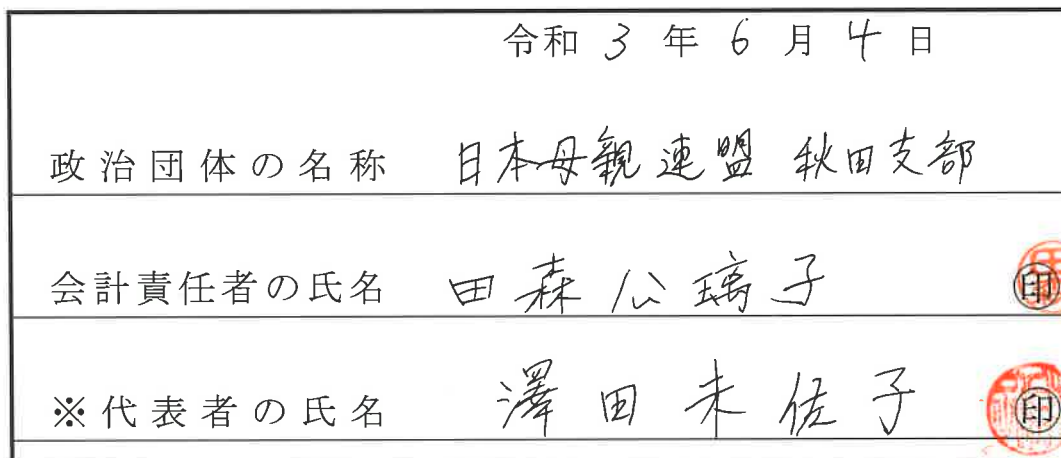 令和 3 年 6 月 4 日
政治団体の名称 日本母親連盟 秋田支部
会計責任者の氏名 田森公璃子 印
※代表者の氏名 澤田未佐子 印